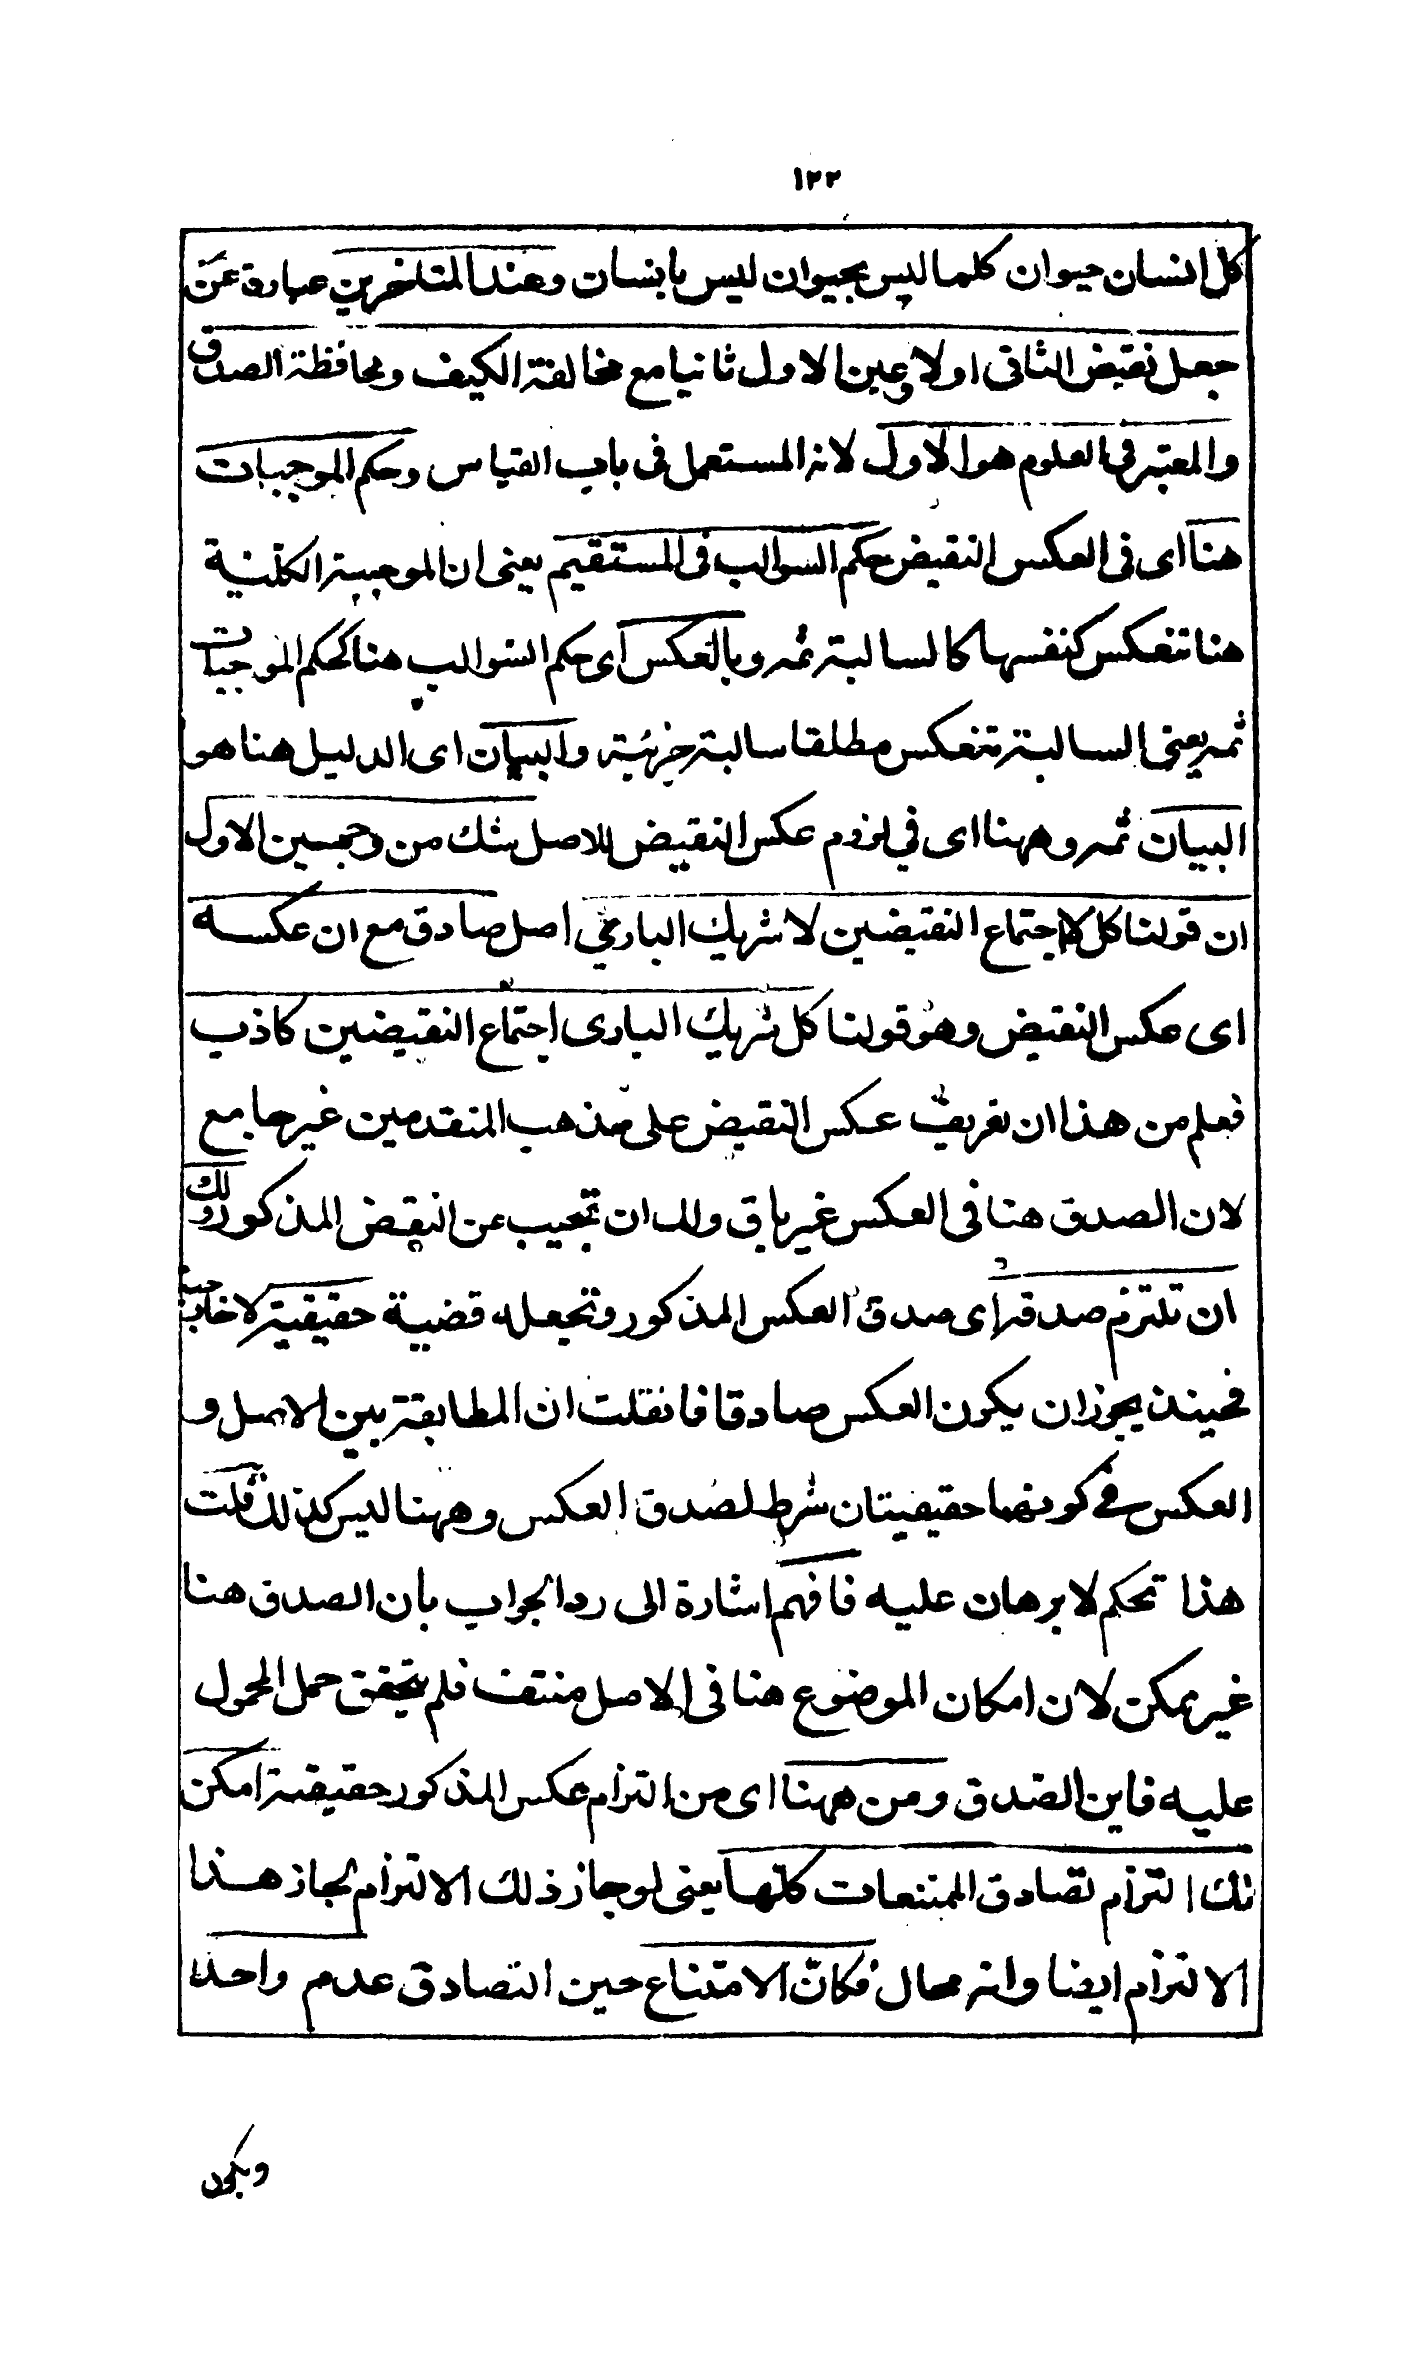 ١٢٢
كل انسان حيوان كلما ليس بحيوان ليس بانسان وعند المتاخرين عبارة عن
جعل نقيض الثانى اولا وعين الاول ثانيا مع مخالفة الكيف ومحافظة الصدق
والمعتبر فى العلوم هو الاول لانه المستعمل فى باب القياس وحكم الموجبات
هنا اى فى العكس النقيض حكم السوالب فى المستقيم يعنى ان الموجبة الكلية
هنا تنعكس كنفسها كالسالبة ثمه وبالعكس اى حكم السوالب هنا كحكم الموجبات
ثمه يعنى السالبة تنعكس مطلقا سالبة جزئية والبيان اى الدليل هنا هو
البيان ثمه وههنا اى في لزوم عكس النقيض للاصل شك من وجهين الاول
ان قولنا كل لا اجتماع النقيضين لا شريك البارى اصل صادق مع ان عكسه
اى عكس النقيض وهو قولنا كل شريك البارى اجتماع النقيضين كاذب
فعلم من هذا ان تعريف عكس النقيض على مذهب المتقدمين غير جامع
لان الصدق هنا فى العكس غير باق ولك ان تجيب عن النقض المذكور ولك
ان تلتزم صدقه اى صدق العكس المذكور وتجعله قضية حقيقية لا خارجية
فحينئذ يجوز ان يكون العكس صادقا فانقلت ان المطابقة بين الاصل و
العكس في كونهما حقيقيتان شرط لصدق العكس وههنا ليس كذلك قلت
هذا تحكم لا برهان عليه فافهم اشارة الى رد الجواب بأن الصدق هنا
غير ممكن لان امكان الموضوع هنا فى الاصل منتف فلم يتحقق حمل المحمول
عليه فاين الصدق ومن ههنا اى من التزام عكس المذكور حقيقية امكن
لك التزام تصادق الممتنعات كلها يعنى لو جاز ذلك الالتزام لجاز هذا
الالتزام ايضا وانه محال فكان الامتناع حين التصادق عدم واحد
ويكون